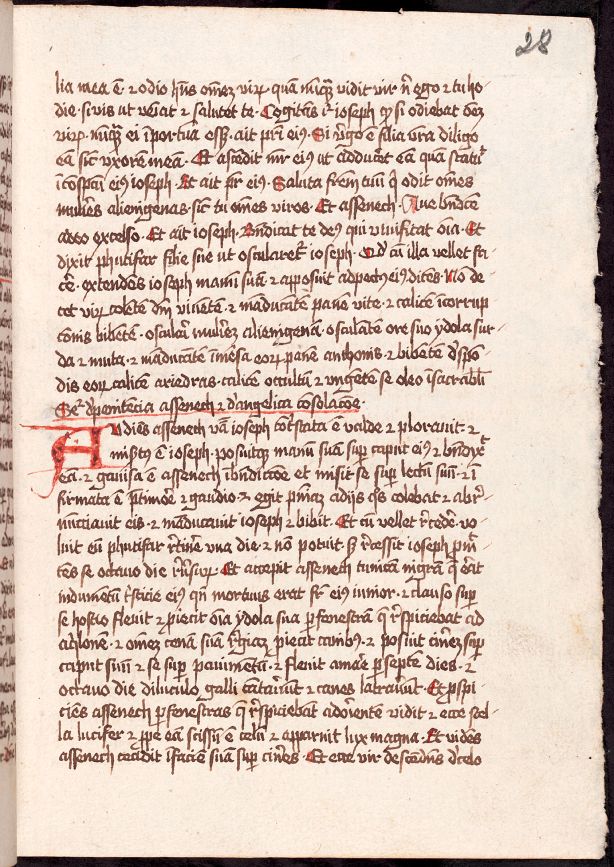 28
lia mea ē ⁊ odio hn̄s omēz virū quā nūq̄ vidit vir n̄ ego ⁊ tu ho
die · si vis ut veīat ⁊ salutet te · Cogitās ioseph q si odiebat oēz
virū · nūq̄ ei īportūa ess · ait pr̄i eiꝰ · Si v̄go ē filia vr̄a diligo
eā sic vxorem meā · Et ascēdit mr̄ eiꝰ ut adducet eā quā statuit
ī cōspectu eiꝰ ioseph · Et ait pr̄ eiꝰ · Saluta fr̄em tuū q̄ odit omēs
mulieres alienigenas · sic tu omēs viros · Et assenech · Aue bn̄dicte
a deo excelso · Et ait ioseph · Bn̄dicat te deꝰ qui vivificat oīa · Et
dixit phutifar filie sue ut oscularet ioseph · Qd cū illa vellet fa
cē · extendens ioseph manū suā ⁊ apposuit ad pectꝰ eiꝰ dicēs · Nō de
cet virū colēte dm̄ viventē · ⁊ māducātē panē vite · ⁊ calicē īcorrup
tionis bibētē · osculari mulierez alienigenā · osculātē ore suo ydola sur
da ⁊ muta · ⁊ māducātē ī mēsa eorū panē anthonis · ⁊ bibētē
dis eorū calicē ariedras · calicē occultū ⁊ vngētē se oleo
De penitēcia assenech ⁊ d angelica cōsolacōe
Audiēs assenech v̄ba ioseph cōtristata ē valde ⁊ plorauit · ⁊
misertꝰ ē ioseph · positaq manū suā sup caput eiꝰ ⁊ bn̄dixit
eā · ⁊ gauisa ē assenech ī bn̄dictōe et misit se sup lectū suū · ⁊ ī
firmata ē p timore ⁊ gaudio · ⁊ egit pn̄iaz a dijs qs colebat ⁊ abre
nūciauit eis · ⁊ māducauit ioseph ⁊ bibit · Et cū vellet recedere vo
luit eū phutifar retinere vna die · ⁊ nō potuit · s recessit ioseph pmit
tēs se octavo die reversur · Et accepit assenech tunicā nigrā q̄ erat
indumētū tristicie eiꝰ qn̄ mortuus erat fr̄ eiꝰ iunior · ⁊ clauso sup
se hostio fleuit ⁊ proiecit oīa ydola sua p fenestrā q̄ respiciebat ad
aqlonē · ⁊ omēz cenā suā regiaz proiecit canibꝰ · ⁊ posuit cinerez sup
caput suū ⁊ se sup pauimētū · ⁊ fleuit amare p septē dies · ⁊
octauo die diluculo galli cātarūt ⁊ canes latrauerūt · Et prospi
ciēs assenech p fenestras q̄ respiciebat ad oriētē vidit ⁊ ecce stel
la lucifer ⁊ prope eā scissū ē celū ⁊ apparuit lux magna · Et vidēs
assenech cecidit ī faciē suā sup cineres · Et ecce vir descēdēns d celo